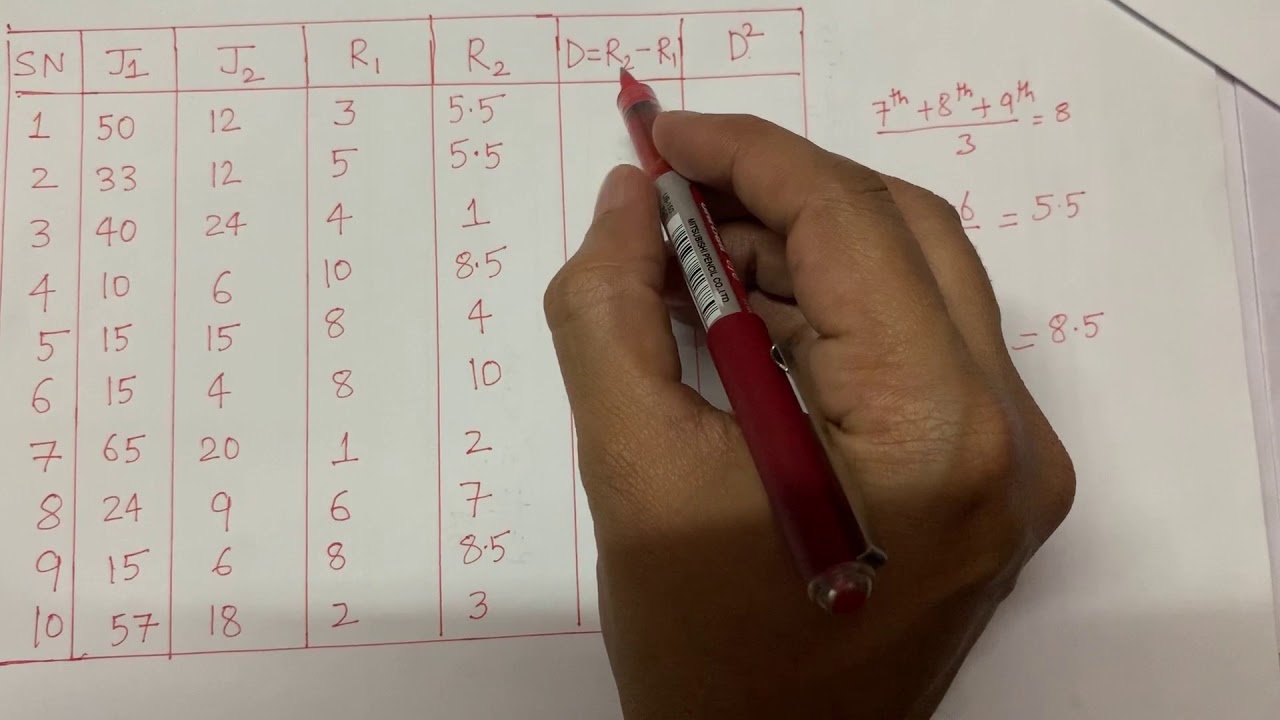 SN J1 J2 R1 R2 D=R2-R1 D²
1 50 12 3 5.5
2 33 12 5 5.5
3 40 24 4 1
4 10 6 10 8.5
5 15 15 8 4
6 15 4 8 10
7 65 20 1 2
8 24 9 6 7
9 15 6 8 8.5
10 57 18 2 3
7th + 8th + 9th
3
= 8
6 = 5.5
= 8.5
MITSUBISHI PENCIL CO., LTD.